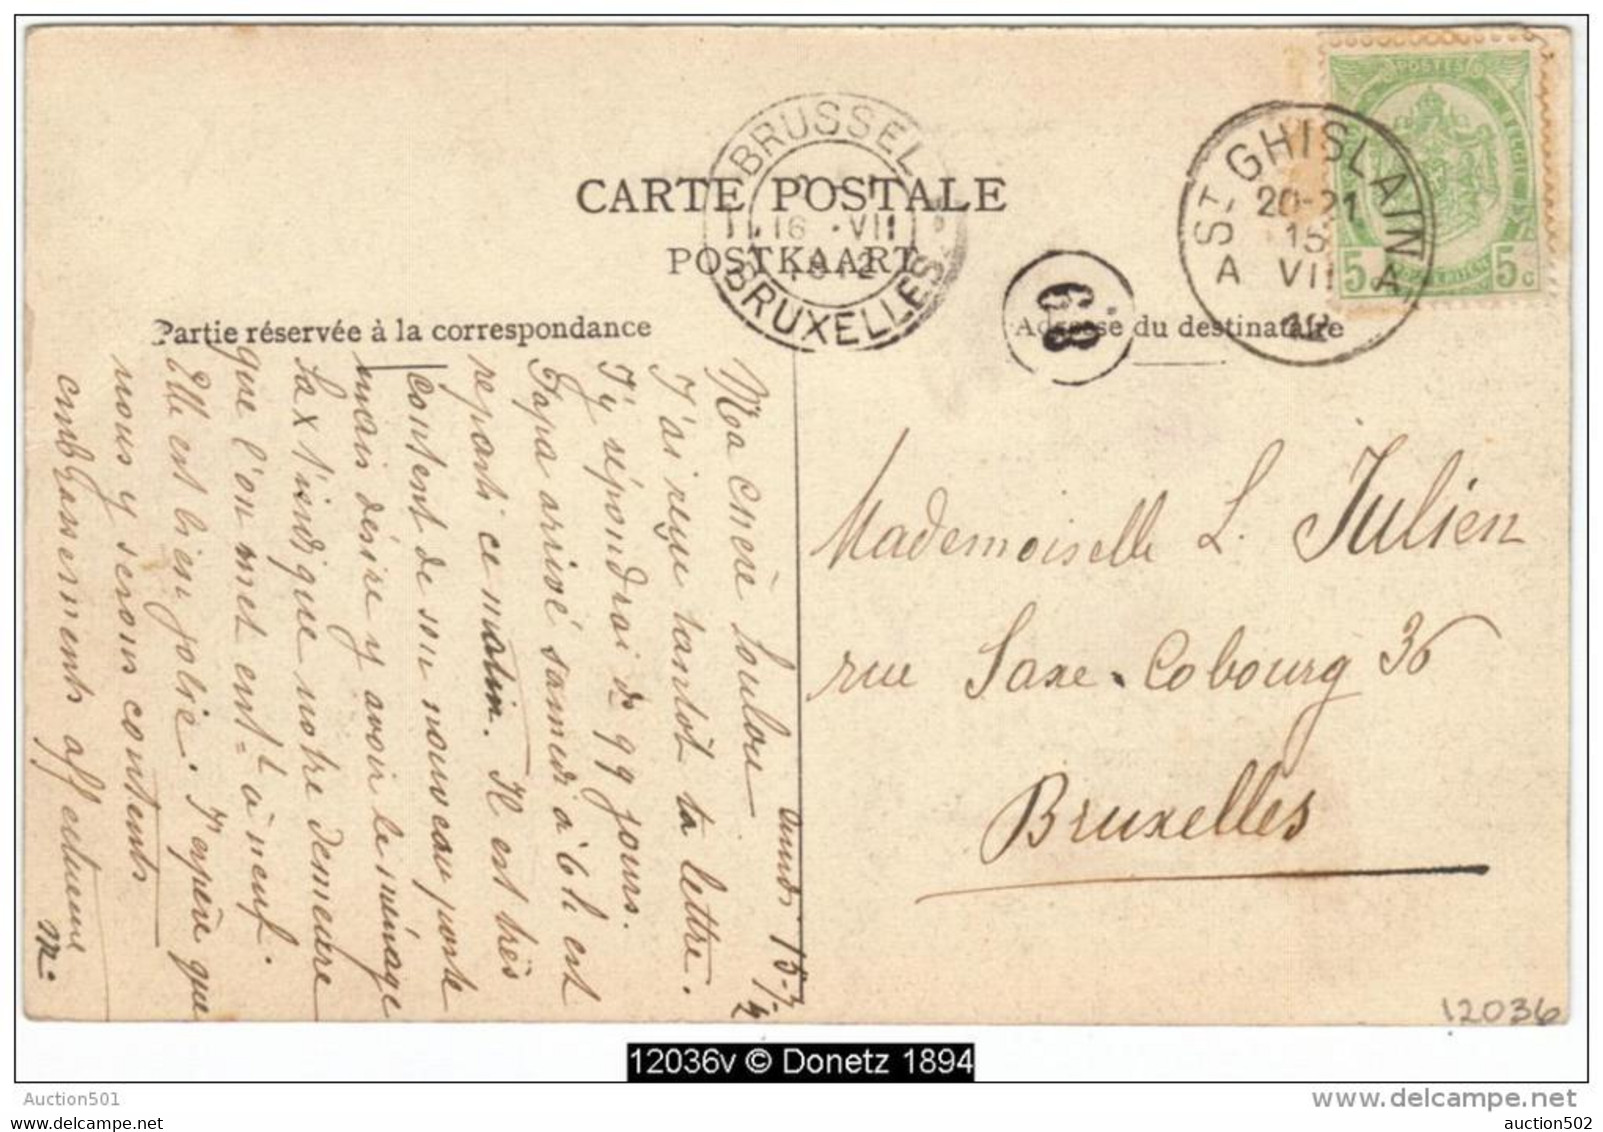 BRUSSEL
16 · VII
1912
BRUXELLES
ST GHISLAIN
20-21
15
VII
A A
12
POSTES
5 5c
CARTE POSTALE
POSTKAART
68
Partie réservée à la correspondance
Adresse du destinataire
lundi 15-7-12
Ma chère Loulou
J'ai reçu tantôt ta lettre.
J'y répondrai ds qq jours.
Papa arrivé samedi à 6h est
reparti ce matin. Il est très
content de son nouveau poste
mais désire y avoir le ménage
Sax t'indique notre demeure
que l'on met ent à neuf.
Elle est bien jolie. J'espère que
nous y serons contents
embrassements affectueux
M.
Mademoiselle L. Julien
rue Saxe-Cobourg 36
Bruxelles
12036
12036v © Donetz 1894
Auction501
www.delcampe.net
auction502